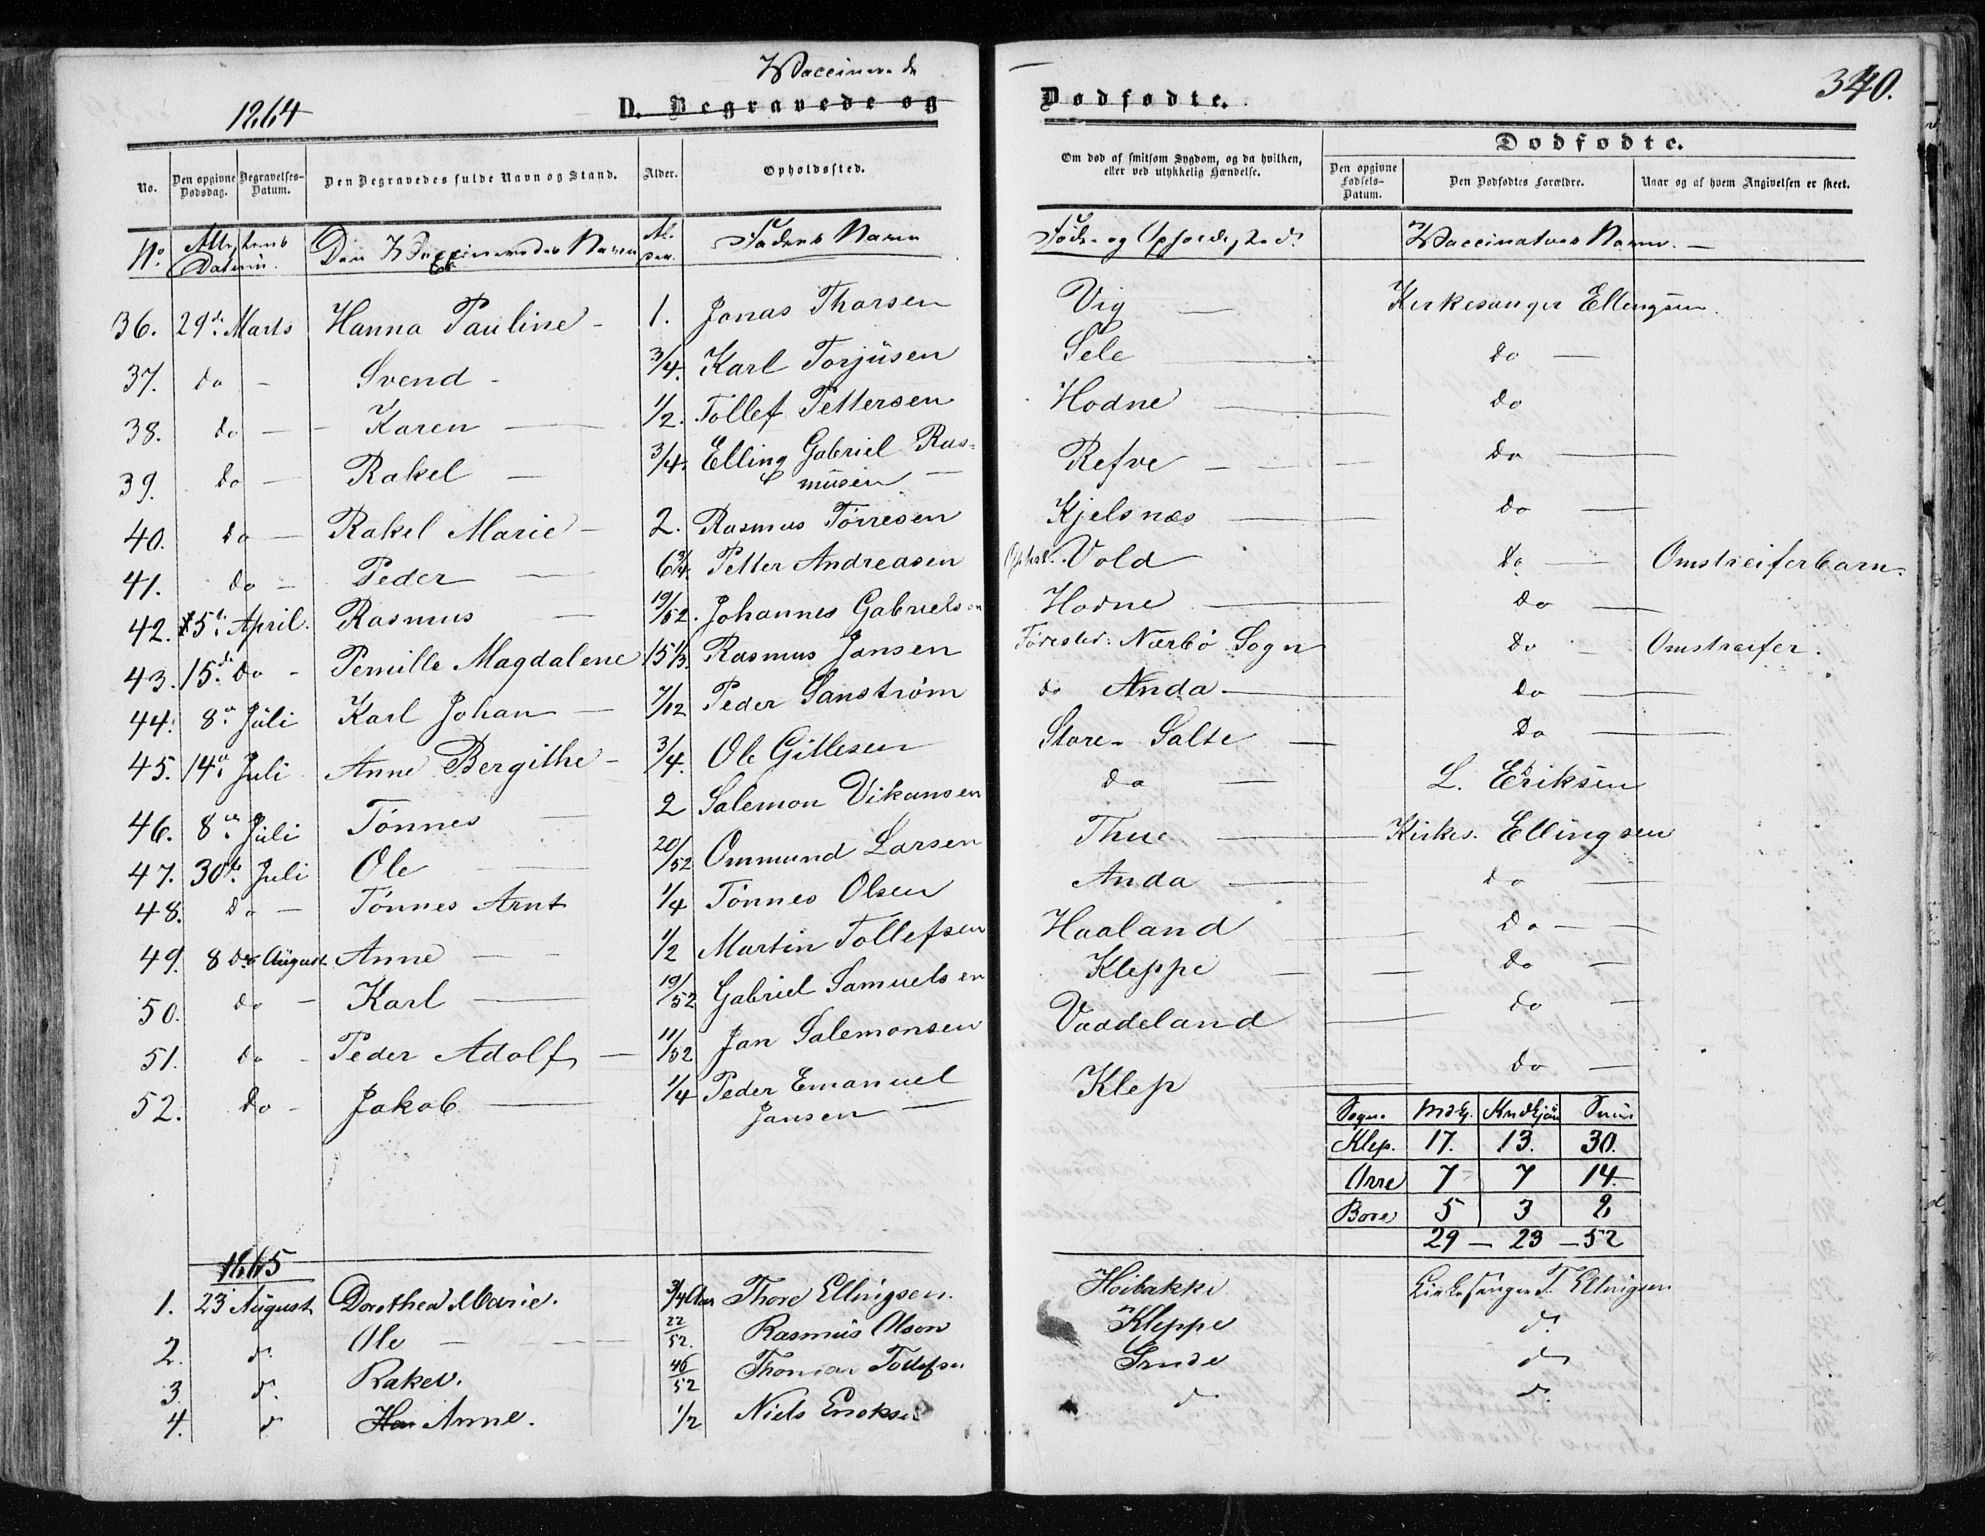 Vaccinerede
1864 D. Begravede og Dødfødte. 340.
Dødfødte.
No. Den opgivne Dødsdag. Begravelses-Datum. Den Begravedes fulde Navn og Stand. Alder. Opholdssted. Om død af smitsom Sygdom, og da hvilken, eller ved ulykkelig Hændelse. Den opgivne Fødsels-Datum. Den Dødfødtes Forældre. Naar og af hvem Angivelsen er skeet.
No. Attestens Datum. Den Vaccineredes Navn Alder. Faderens Navn Føde- og Opholdssted. Vaccinateurs Navn. —
36. 29de Marts Hanna Pauline - 1. Jonas Thorsen Vig — Kirkesanger Ellingsen.
37. do - Svend - 3/4. Karl Torjüsen Sele — do —
38. do — Karen — 1/2. Tollef Pettersen Hodne — do
39. do — Rakel — 3/4. Elling Gabriel Ras-
müsen — Refve - — do —
40. do — Rakel Marie - 2. Rasmus Tørresen Kjelsnæs — do —
41. do - Peder — 6 3/4. Petter Andreasen Ophol. Vold do — Omstreiferbarn.
42. 5te April. Rasmus — 19/52. Johannes Gabrielsen Hodne — do —
43. 15de Do - Pernille Magdalene 15 1/3. Rasmus Jansen Fødested: Nærbø Sogn do - Omstreifer.
44. 8de Jüli Karl Johan — 7/12 Peder Sanstrøm do Anda — do —
45. 14de Juli Anne Bergithe - 3/4. Ole Gitlesen Store-Salte — do —
46. 8de Jüli Tønnes — 2 Salemon Vikansen do — L. Eriksen
47. 30te Juli Ole — 20/52 Ommund Larsen Thue — Kirkes. Ellingsen
48. do — Tønnes Arnt 1/4 Tønnes Olsen Anda — do —
49. 8de August Anne — 1/2 Martin Tollefsen Haaland — do —
50. do - Karl — 19/52 Gabriel Samuelsen Kleppe — do —
51. do - Peder Adolf — 11/52 Jan Salemonsen Vaddeland — do —
52. do - Jakob — 1/4 Peder Emanuel
Jansen — Klep — do —
Sogn. Mdkj. Kndkjön Sum
Klep. 17. 13. 30.
Orre 7 7 14
Bore 5 3 8
29 — 23 — 52
1865
1. 23 August Dorothea Marie. 3/4 Aar Thore Ellingsen. Høibakke Kirkesanger T. Ellingsen
2. d. Ole — 22/52. Rasmüs Olson Kleppe d.
3 d. Rakel. 46/52 Thomas Tollefsen d.
4. d Han Anne. 1/2 Niels Eriksen d. d.